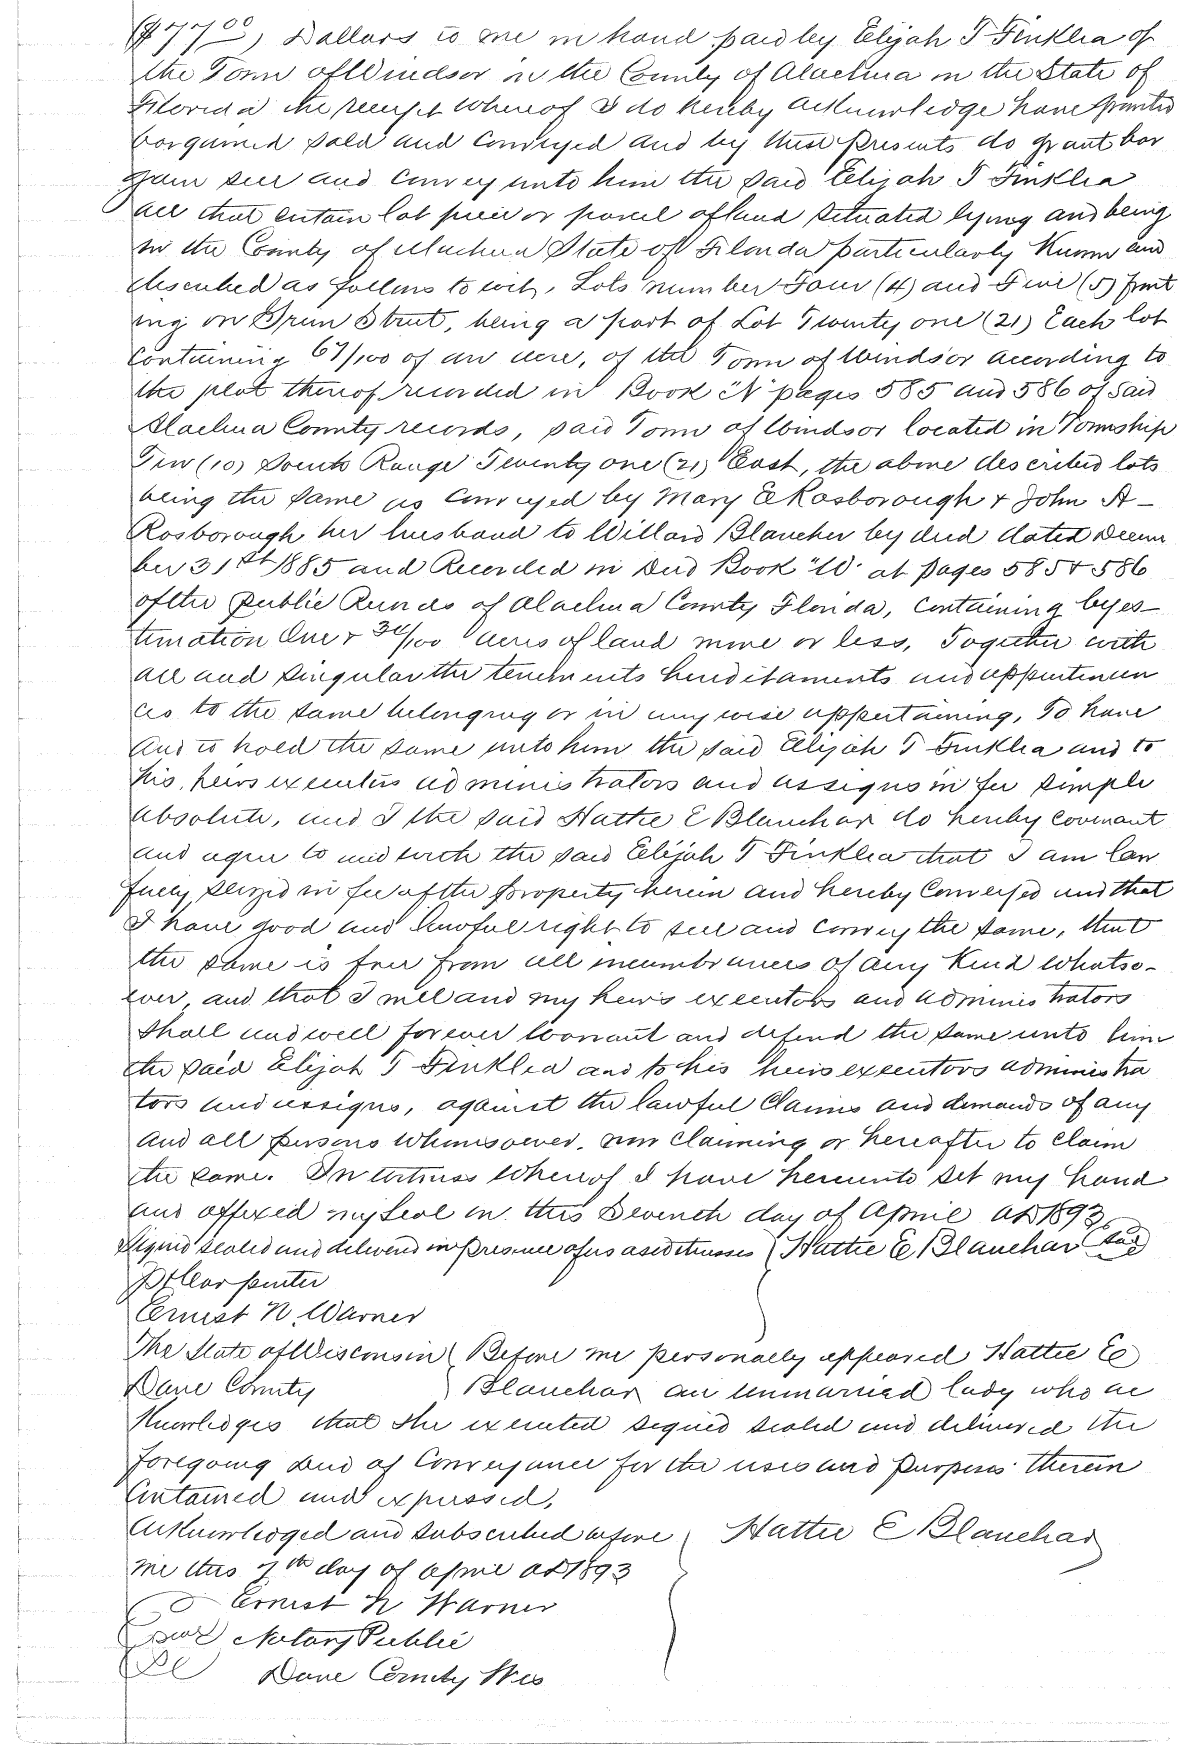 ($77.00) Dollars to me in hand paid by Elijah T Finklea of
the Town of Windsor in the County of Alachua in the State of
Florida the receipt whereof I do hereby acknowledge have granted
bargained sold and conveyed and by these presents do grant bar
gain sell and convey unto him the said Elijah T Finklea
all that certain lot piece or parcel of land situated lying and being
in the County of Alachua State of Florida particularly Known and
described as follows to wit, Lots number Four (4) and Five (5) front
ing on Green Street, being a part of Lot Twenty one (21) Each lot
containing 67/100 of an acre, of the Town of Windsor according to
the plot thereof recorded in Book "N" pages 585 and 586 of said
Alachua County records, said Town of Windsor located in Township
Ten (10) South Range Twenty one (21) East, the above described lots
being the same as conveyed by Mary E Rosborough & John A-
Rosborough her husband to Willard Blanchar by deed dated Decem
ber 31st 1885 and Recorded in Deed Book "W" at pages 585 & 586
of the public Records of Alachua County Florida, containing by es-
timation One & 34/100 acres of land more or less, Together with
all and singular the tenements hereditaments and appurtenan
ces to the same belonging or in any wise appertaining, To have
And to hold the same unto him the said Elijah T Finklea and to
his heirs executors administrators and assigns in fee simple
absolute, and I the said Hattie E Blanchar do hereby covenant
and agree to and with the said Elijah T Finklea that I am law
fully seized in fee of the property herein and hereby Conveyed and that
I have good and lawful right to sell and convey the same, that
the same is free from all incumbrances of any Kind whatso-
ever, and that I will and my heirs executors and administrators
shall and will forever warrant and defend the same unto him
the said Elijah T Finklea and to his heirs executors administra
tors and assigns, against the lawful Claims and demands of any
And all persons whomsoever, now claiming or hereafter to claim
the same. In witness whereof I have hereunto set my hand
and affixed my seal on this Seventh day of April AD 1893
Signed sealed and delivered in presence of us as witnesses Hattie E Blanchar (Seal)
Carpenter
Ernest N. Warner
The State of Wisconsin Before me personally appeared Hattie E
Dane County Blanchar an unmarried lady who ac
Knowledges that she executed signed sealed and delivered the
foregoing Deed of Conveyance for the uses and purposes therein
Contained and expressed,
Acknowledged and subscribed before Hattie E Blanchar
me this 7th day of April AD 1893
Ernest N Warner
Notary Public
Dane County Wis